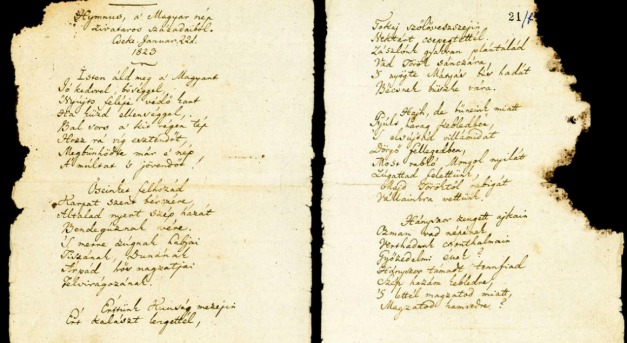 Hymnus, a' Magyar nép
zivataros századaiból.
Cseke, Januar. 22d.
1823
Isten áld meg a' Magyart
Jó kedvvel, bőséggel,
Nyújts feléje védő kart
Ha küzd ellenséggel,
Bal sors a' kit régen tép
Hozz rá víg esztendőt
Megbűnhödte már e' nép
A' múltat 's jövendőt!
Őseinket felhozád
Kárpát szent bérczére,
Általad nyert szép hazát
Bendegúznak vére.
'S merre zúgnak habjai
Tiszának, Dunának
Árpád hős magzatjai
Felvirágozának.
Értünk Kunság mezején
Ért kalászt lengettél,
21
Tokaj szőlővesszein
Nektárt csepegtettél.
Zászlónk gyakran plántálád
Vad Török sánczára,
'S nyögte Mátyás bús hadát
Bécsnek büszke vára.
Hajh, de bűneink miatt
Gyúlt harag kebledben,
'S elsújtád villámidat
Dörgő fellegedben,
Most rabló Mongol nyilát
Zúgattad felettünk,
Majd Töröktől rabigát
Vállainkra vettünk.
Hányszor zengett ajkain
Ozman vad népének
Vert hadunk csonthalmain
Győzedelmi ének!
Hányszor támadt tenfiad
Szép hazám kebledre,
'S lettél magzatod miatt
Magzatod hamvedre?